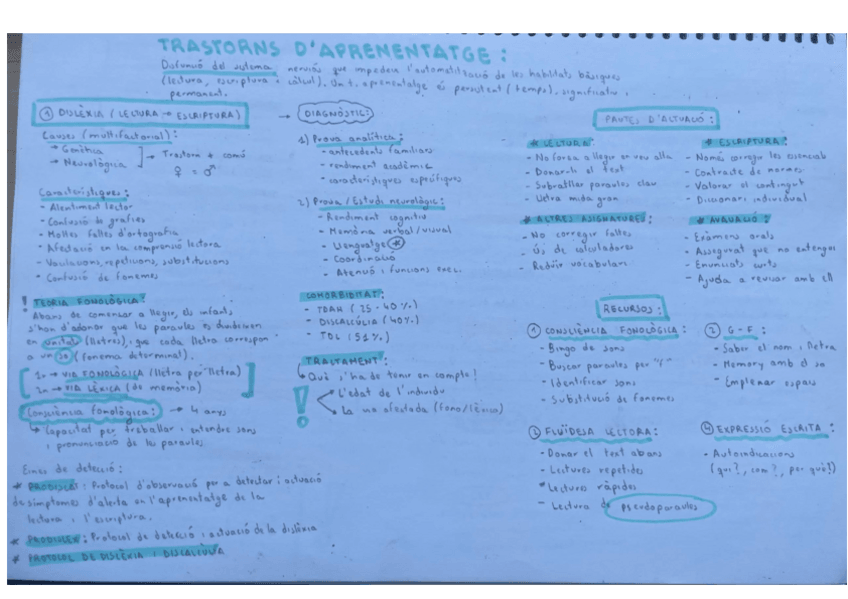 TRASTORNS D'APRENENTATGE:
Disfunció del sistema nerviós que impedeix l'automatització de les habilitats bàsiques
(lectura, escriptura i càlcul). Un t. aprenentatge és persistent (temps), significatiu i
permanent.
① DISLÈXIA (LECTURA → ESCRIPTURA)
Causes (multifactorial):
→ Genètica
→ Neurològica
→ Trastorn + comú
♀ = ♂
Característiques:
- Alentiment lector
- Confusió de grafies
- Moltes faltes d'ortografia
- Afectació en la comprensió lectora
- Vacil·lacions, repeticions, substitucions
- Confusió de fonemes
! TEORIA FONOLÒGICA:
Abans de començar a llegir, els infants
s'han d'adonar que les paraules es divideixen
en unitats (lletres), i que cada lletra correspon
a un so (fonema determinat).
1r → VIA FONOLÒGICA (lletra per lletra)
2n → VIA LÈXICA (de memòria)
Consciència fonològica: → 4 anys
↳ Capacitat per treballar i entendre sons
i pronunciació de les paraules
Eines de detecció:
* PRODISCAT: Protocol d'observació per a detectar i actuació
de símptomes d'alerta en l'aprenentatge de la
lectura i l'escriptura.
* PRODISLEX: Protocol de detecció i actuació de la dislèxia
* PROTOCOL DE DISLÈXIA I DISCALCÚLIA
→ DIAGNÒSTIC:
1) Prova analítica:
- antecedents familiars
- rendiment acadèmic
- característiques específiques
2) Prova / Estudi neurològic:
- Rendiment cognitiu
- Memòria verbal / visual
- Llenguatge *
- Coordinació
- Atenció i funcions exec.
COMORBIDITAT:
- TDAH (25-40%)
- DISCALCÚLIA (40%)
- TDL (51%)
TRACTAMENT:
↳ Què s'ha de tenir en compte?
! L'edat de l'individu
La via afectada (fono/lèxica)
PAUTES D'ACTUACIÓ:
* LECTURA:
- No forçar a llegir en veu alta
- Donar-li el text
- Subratllar paraules clau
- Lletra mida gran
* ESCRIPTURA:
- Només corregir les essencials
- Contraste de normes
- Valorar el contingut
- Diccionari individual
* ALTRES ASIGNATURES:
- No corregir faltes
- Ús de calculadores
- Reduir vocabulari
* AVALUACIÓ:
- Exàmens orals
- Assegurar que ho entengui
- Enunciats curts
- Ajuda a revisar amb ell
RECURSOS:
① CONSCIÈNCIA FONOLÒGICA:
- Bingo de sons
- Buscar paraules per "f"
- Identificar sons
- Substitució de fonemes
② G-F:
- Saber el nom i lletra
- Memory amb el so
- Emplenar espais
③ FLUÏDESA LECTORA:
- Donar el text abans
- Lectures repetides
- Lectures ràpides
- Lectura de pseudoparaules
④ EXPRESSIÓ ESCRITA:
- Autoindicacions
(qui?, com?, per què?)